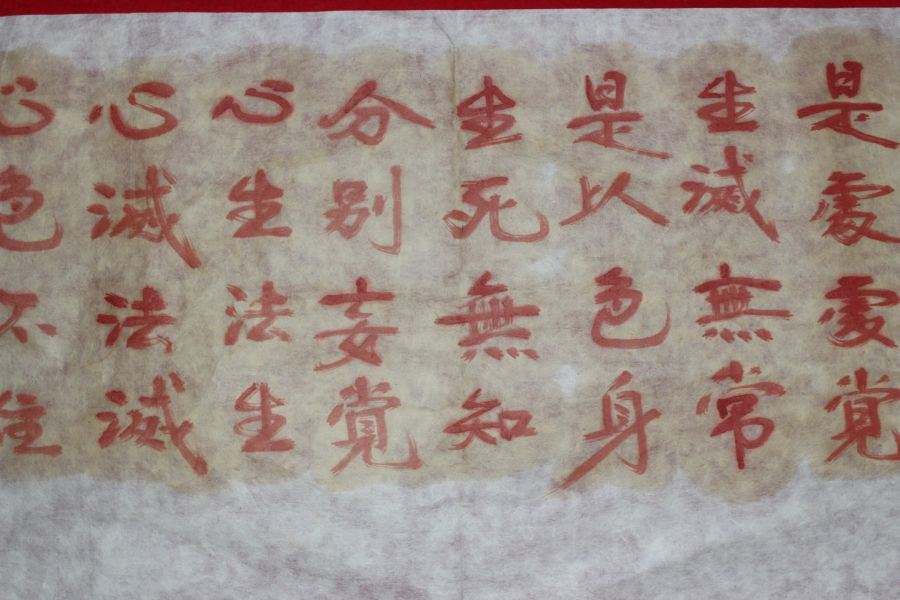 是處處覚
生滅無常
是以色身
生死無知
分别妄覚
心生法生
心滅法滅
心色不住